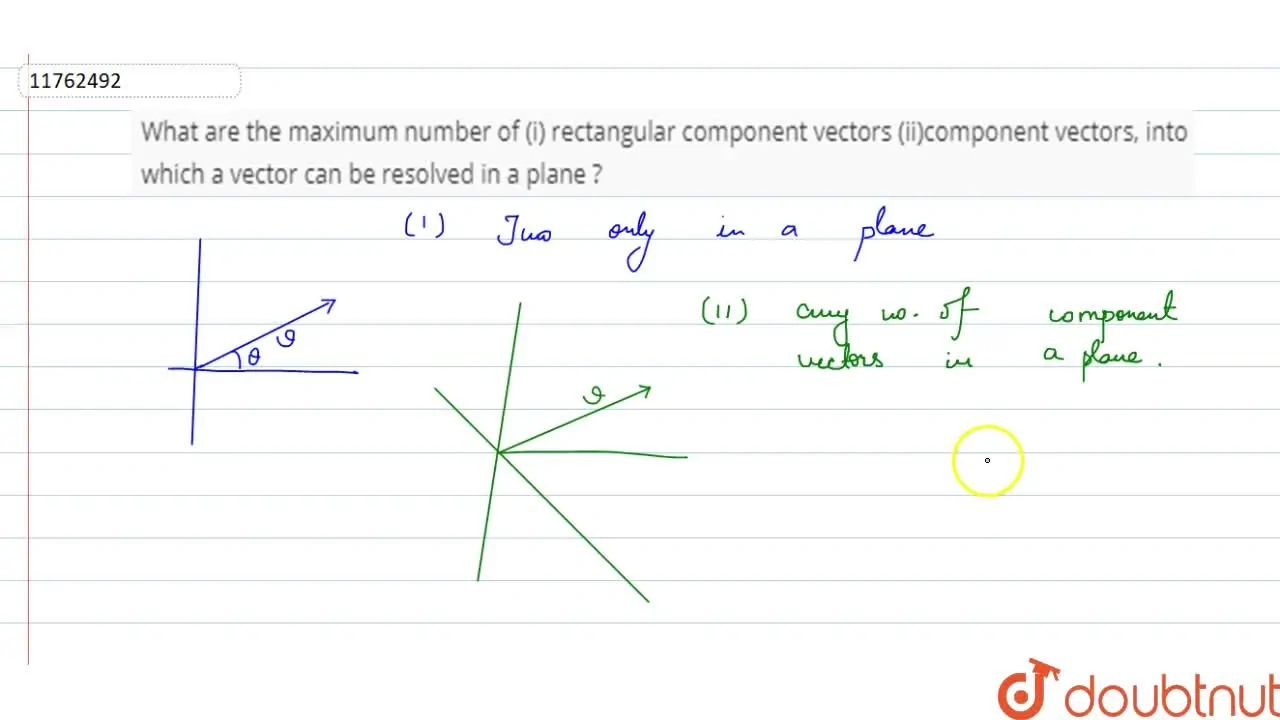 11762492
What are the maximum number of (i) rectangular component vectors (ii)component vectors, into
which a vector can be resolved in a plane ?
(I) Two only in a plane
θ
(II) any no. of component
vectors in a plane.
doubtnut